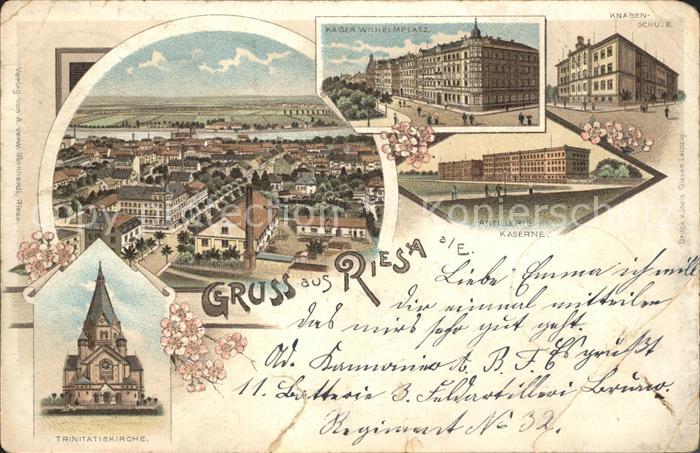 KAISER WILHELMPLATZ.
KNABEN-
SCHULE
ARTILLERIE
KASERNE.
Verlag von A. verw. Reinhardt, Riesa.
Druck v. Louis Glaser, Leipzig
GRUSS aus RIESA a/E.
TRINITATISKIRCHE.
Liebe Emma ich will
dir einmal mitteilen
das mirs sehr gut geht.
Ad. Kannonier A. B. F. Es grüßt
11. Batterie 3. Feldartilleri Bruno.
Regiment No 32.